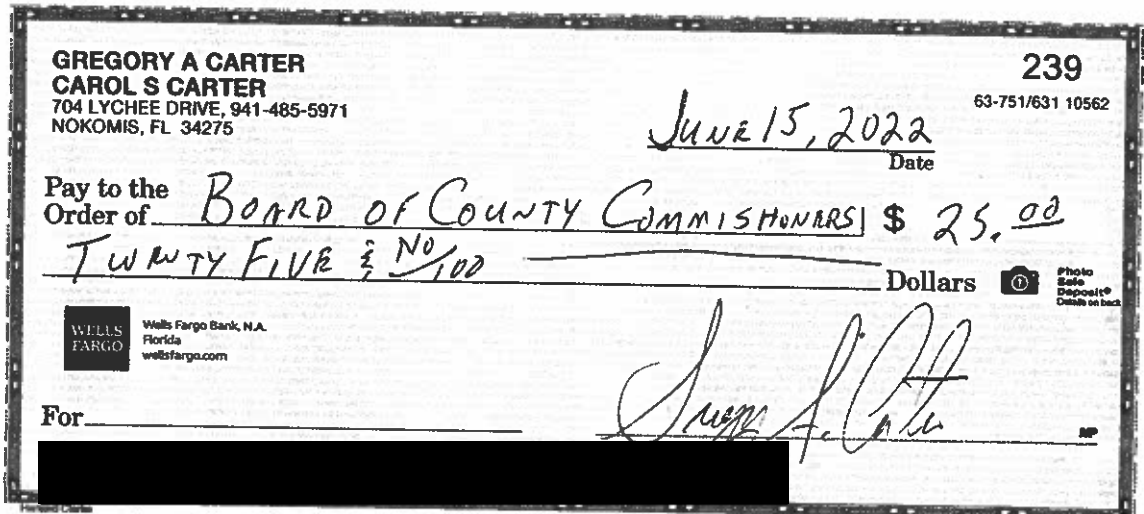 GREGORY A CARTER
CAROL S CARTER
704 LYCHEE DRIVE, 941-485-5971
NOKOMIS, FL 34275
239
63-751/631 10562
JUNE 15, 2022
Date
Pay to the
Order of BOARD OF COUNTY COMMISHONERS $ 25.00
TWENTY FIVE & NO/100 Dollars
Photo
Safe
Deposit®
Details on back
WELLS
FARGO
Wells Fargo Bank, N.A.
Florida
wellsfargo.com
For
MP
Harland Clarke